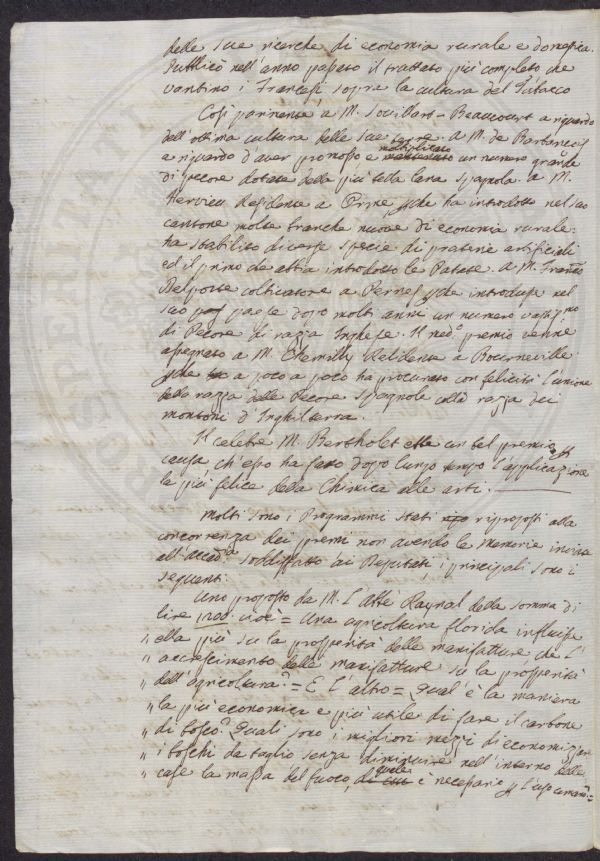 delle sue ricerche di economia rurale e domestica.
Pubblicò nell'anno passato il trattato più completo che
vantino i Francesi sopra la cultura del Tabacco
Così parimente a M. Souillart-Beaucourt a riguardo
dell'ottima cultura delle sue terre. a M. de Barbançois
a riguardo d'aver promosso e moltiplicato un numero grande
di Pecore dotate della più bella lana spagnola. a M.
Residente a che ha introdotto nel suo
cantone molte branche nuove di economia rurale:
ha stabilito diverse specie di praterie artificiali
ed il primo che abbia introdotto le Patate. a M.
Delporte coltivatore a che introdusse nel
suo paese dopo molti anni un numero
di Pecore di razza Inglese. Il med.o premio venne
assegnato a M. Residente a Bourneville
che a poco a poco ha procurato con felicità l'unione
della razza delle Pecore spagnole colla razza dei
montoni d'Inghilterra.
Il celebre M. Berthollet ebbe un tal premio a
causa ch'esso ha fatto dopo lungo tempo l'applicazione
la più felice della Chimica alle arti.
Molti sono i Programmi stati riproposti alla
concorrenza dei premi non avendo le Memorie inviate
all'accad.a soddisfatto ai Deputati, i principali sono i
seguenti:
Uno proposto da M. L'Abbé Raynal della somma di
lire 1200 cioè = Una agricoltura florida influisce
" ella più su la prosperità delle manifatture che l'
" accrescimento delle manifatture su la prosperità
" dell'agricoltura? = E l'altro = Qual è la maniera
" la più economica e più utile di fare il carbone
" di bosco? Quali sono i migliori mezzi di economizzare
" i boschi da taglio senza diminuire nell'interno delle
" case la massa del fuoco, quale è necessario